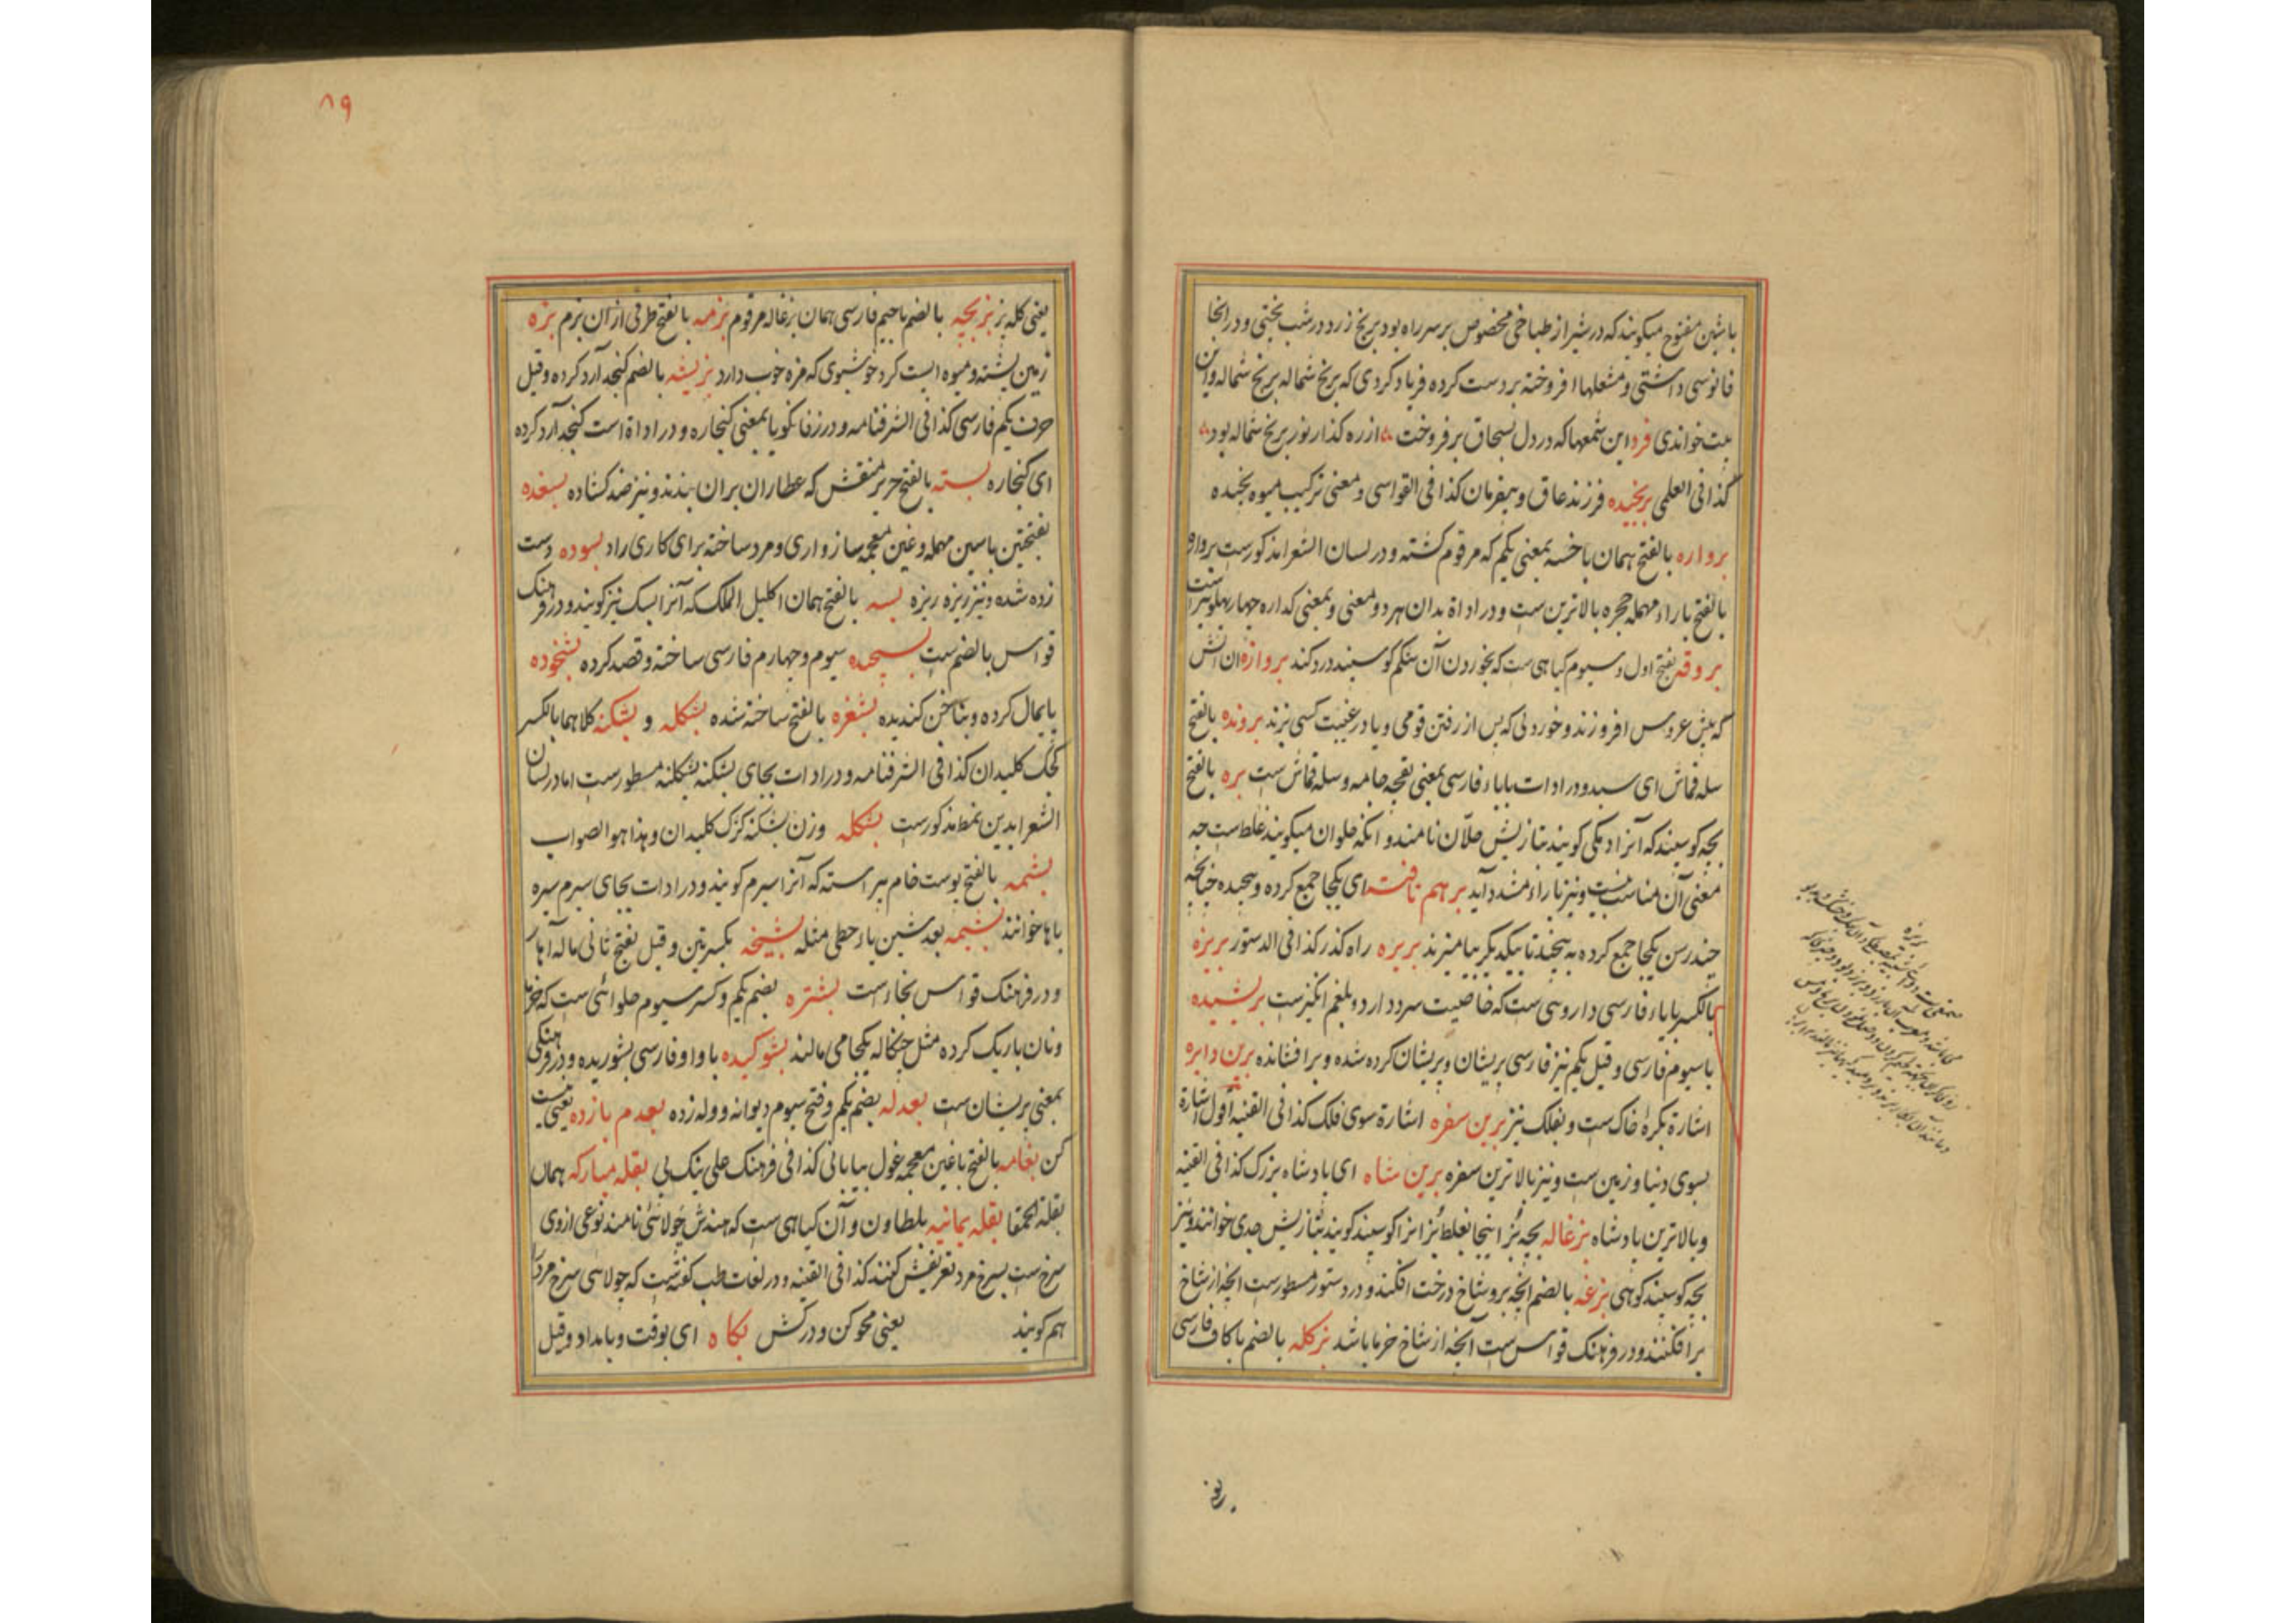 باشین مفتوح میکویند که در شیراز طباخی مخصوص بر سر راه بود برنج زرد در شب پختی و در انجا
فانوسی داشتی و مشعلها افروخته بر دست کرده فریاد کردی که برنج شماله برنج شماله و این
بیت خواندی فرد این شمعها که در دل بسحاق بر فروخت از ره کذار نور برنج شماله بود
کذا فی العلمی برنجیده فرزند عاق و بیفرمان کذا فی القواسی و معنی ترکیب میوه
برواره بالفتح همان با خسه بمعنی یکم که مرقوم کشته و در لسان الشعرا مذکورست
بالفتح با راء مهمله حجره بالاترین ست و در اداة بدان هر دو معنی و بمعنی کداره چهار پهلو نیز است
بروقه بفتح اول و سیوم کیاهی ست که بخوردن آن شکم کوسپند درد کند بروازه ان اتش
که پیش عروس افروزند و خوردنی که پس از رفتن قومی و یا در غیبت کسی پزند برونده بالفتح
سله قماش ای سبد و در ادات با باء فارسی بمعنی بقچه جامه و سله قماش ست بره بالفتح
بچه کوسپند که آنرا دیکی کویند بتازیش حلّان نامند و انکه حلوان میکویند غلط است چه
معنی آن مناسب نیست و نیز با راء مشدد آید بر هم تافته ای یکجا جمع کرده و پیچیده چنانچه
چند رسن یکجا جمع کرده به پیچند تا بیکدیکر بیامیزند بریره راه کذر کذا فی الدستور بریزه
بالکسر با باء فارسی داروئی ست که خاصیت سرد دارد و بلغم انکیزست بریشیده
با سیوم فارسی و قیل یکم نیز فارسی پریشان و پریشان کرده شده و بر افشانده برین دایره
اشارة بکرۀ خاک ست و بفلک نیز برین سفره اشارة سوی فلک کذا فی القنیه اقول اشارة
بسوی دنیا و زمین ست و نیز بالاترین سفره برین شاه ای بادشاه بزرک کذا فی القنیه
و بالاترین بادشاه بزغاله بچه بُز اینجا بغلط بُز انرا کوسپند کویند بتازیش جدی خوانند و نیز
بچه کوسپند کوهی بزغه بالضم انچه برو شاخ درخت افکنند و در دستور مسطورست انچه از شاخ
بر افکنند و در فرهنک قواس ست آنچه از شاخ خرما باشد بزکله بالضم با کاف فارسی
٨٩
یعنی کله بز بزبچه بالضم با جیم فارسی همان بزغاله مرقوم بزمه بالفتح طرفی از ان بزم بزه
زمین پشته و میوه ایست کرد خوشبوی که مزه خوب دارد بزیشه بالضم کنجد آرد کرده و قیل
حرف یکم فارسی کذا فی الشرفنامه و در زفانکویا بمعنی کنجاره و در اداة است کنجد آرد کرده
ای کنجاره بسته بالفتح حریر منقش که عطاران بران بندند و نیز ضد کشاده بسغده
بفتحتین باسین مهمله و غین معجمه سازواری و مرد ساخته برای کاری را بسوده دست
زده شده و نیز ریزه ریزه بسه بالفتح همان اکلیل الملک که آنرا بسک نیز کویند و در فرهنک
قواس بالضم ست بسیجیده سیوم و چهارم فارسی ساخته و قصد کرده بشخوده
پایمال کرده و بناخن کندیده بشغزه بالفتح ساخته شده بشکله و بشکنه کلاهما بالکسر
کجک کلیدان کذا فی الشرفنامه و در ادات بجای بشکنه بشکلنه مسطورست اما در لسان
الشعرا بدین نمط مذکورست بشکله وزن بشکنه کزک کلیدان و هذا هو الصواب
بشمه بالفتح پوست خام پیراسته که آنرا سیرم کویند و در ادات بجای سیرم سیره
باها خوانند بشیمه بعد شین یاء حطی مثله بشیخه بکسرتین و قیل بفتح ثانی ماله آهار
و در فرهنک قواس بخاء است بشتره بضم یکم و کسر سیوم حلوائی ست که خرما
و نان باریک کرده مثل چنکاله یکجا می مالند بشوکیده با واو فارسی بشوریده و در فرهنکی
بمعنی پریشان ست بعدله بضم یکم و فتح سیوم دیوانه و وله زده بعدم باز ده یعنی نیست
کن بغامه بالفتح با غین معجمه غول بیابانی کذا فی فرهنک علی بیک پی بقله مبارکه همان
بقلة الحمقا بقله یمانیه بلطاون و آن کیاهی ست که هندش چولائی نامند نوعی از وی
سرخ ست بسرخ مرد تعریفش کنند کذا فی القنیه و در لغات طب کفته است که چولائی سرخ مرد را
هم کویند یعنی محو کن و در کش بکاه ای بوقت و بامداد و قیل